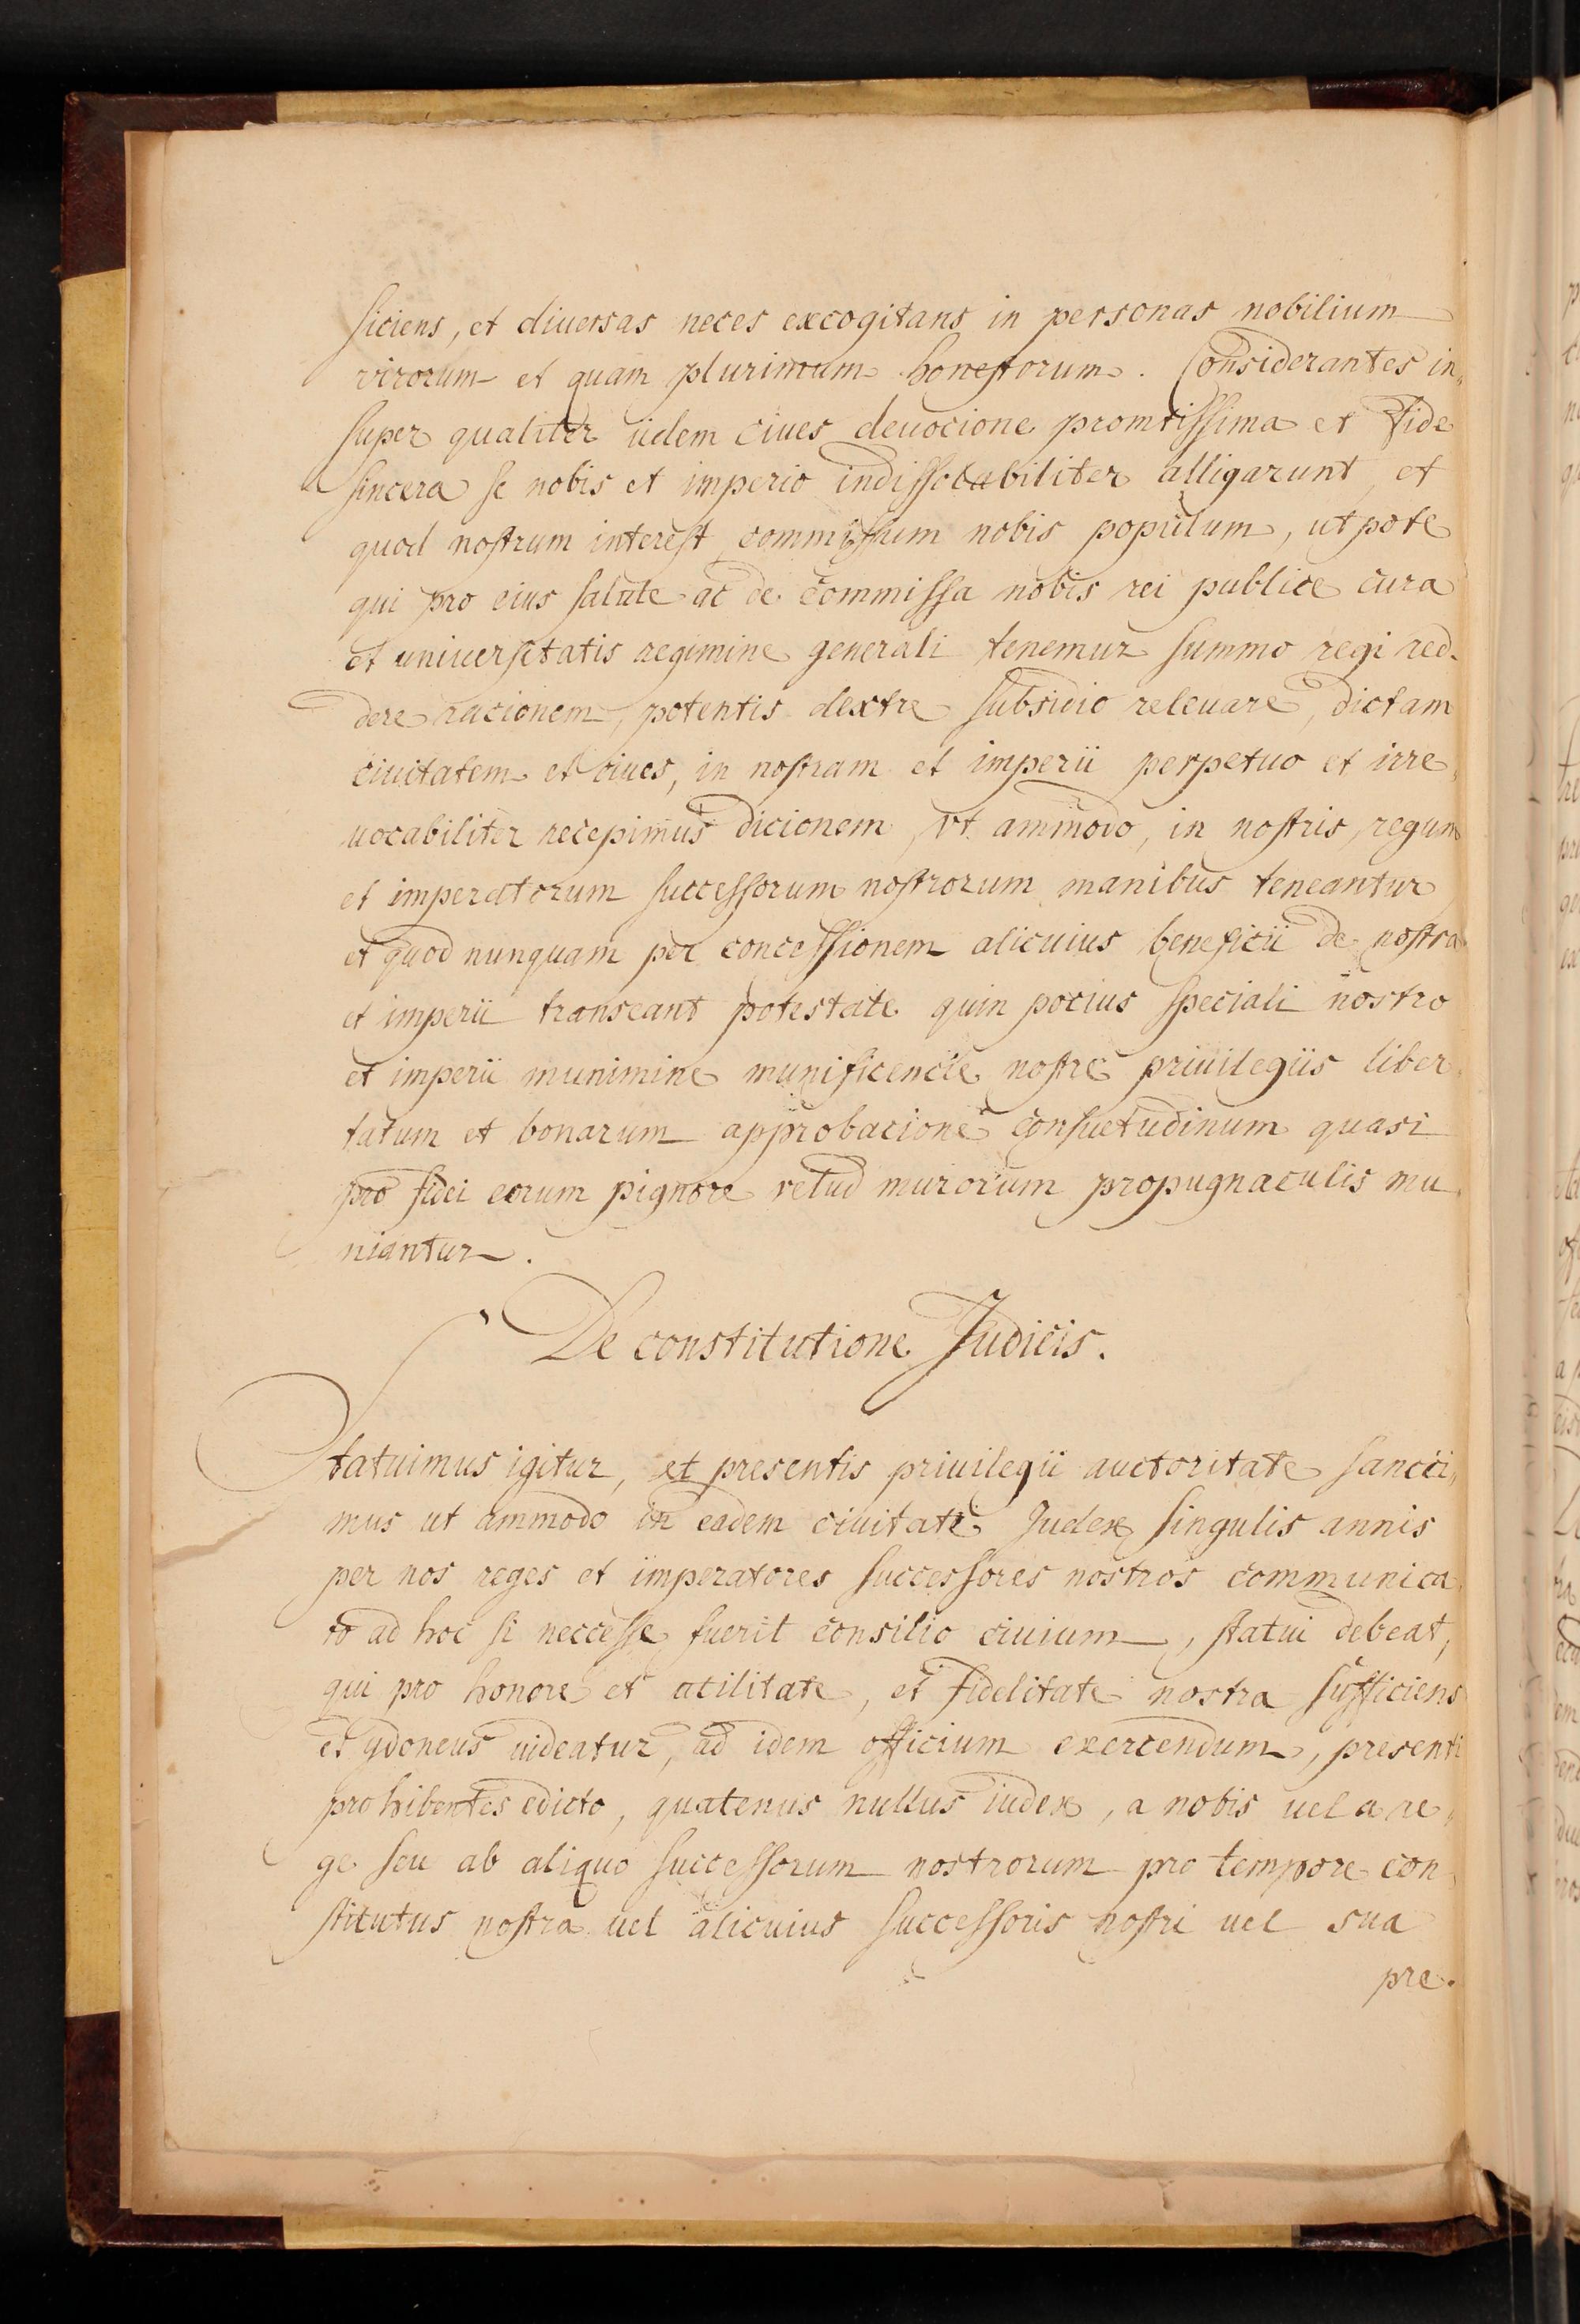 ficiens, et diuersas neces excogitans in personas nobilium
virorum et quam plurimum honestorum. Considerantes in„
super qualiter iidem ciues deuocione promtissima et fide
sincera se nobis et imperio indissolubiliter alligarunt, et
quod nostrum interest commissum nobis populum, utpote
qui pro eius salute ac de commissa nobis rei publice cura
et uniuersitatis regimine generali tenemur summo regi red.
dere racionem, potentis dextre subsidio releuare, dictam
ciuitatem et ciues, in nostram et imperii perpetuo et irre„
uocabiliter recepimus dicionem, vt ammodo, in nostris, regum
et imperatorum successorum nostrorum manibus teneantur
et quod nunquam per concessionem alicuius beneficii de nostra
et imperii transeant potestate quin pocius speciali nostro
et imperii munimine munificencie nostre priuilegiis liber„
tatum et bonarum approbacione consuetudinum quasi
pro fidei eorum pignore velud murorum propugnaculis mu„
niantur.
De constitutione Judicis.
Statuimus igitur, et presentis priuilegii auctoritate sancci„
mus ut ammodo in eadem ciuitate Judex singulis annis
per nos reges et imperatores successores nostros communica„
to ad hoc si neccesse fuerit consilio ciuium, statui debeat,
qui pro honore et utilitate, et fidelitate nostra sufficiens
et ydoneus uideatur, ad idem officium exercendum, presenti
prohibentes edicto, quatenus nullus iudex, a nobis uel a re„
ge seu ab aliquo successorum nostrorum pro tempore con„
stitutus nostra uel alicuius successoris nostri uel sua
pre.